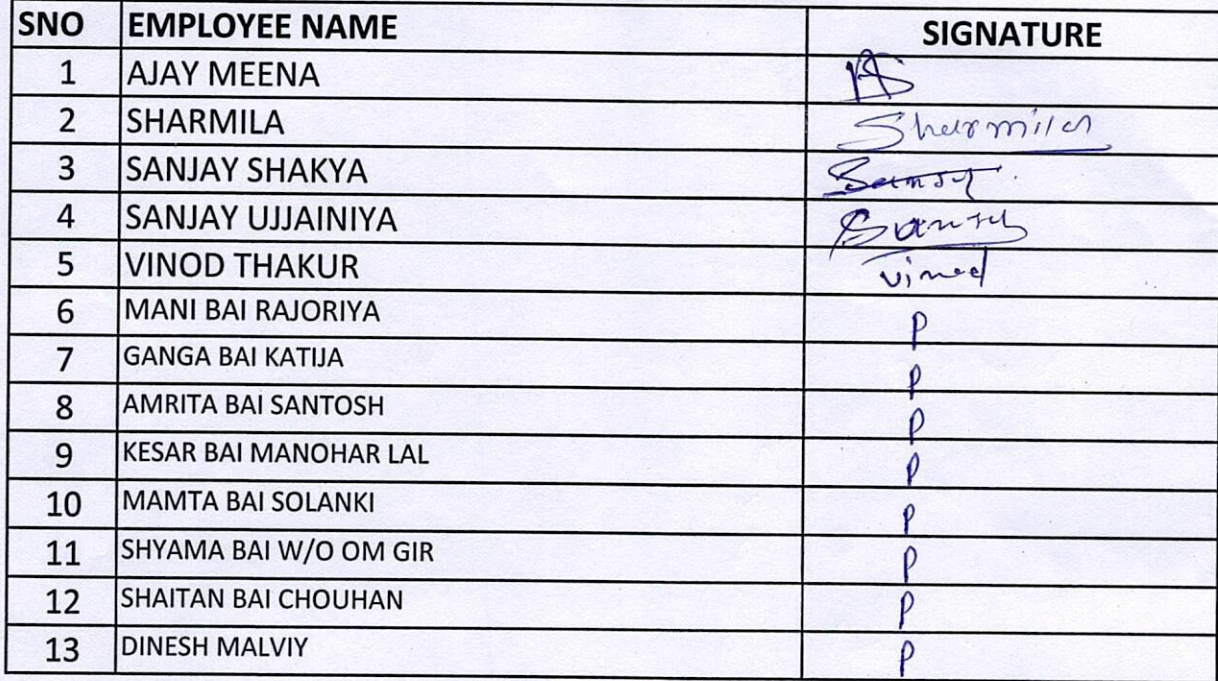 SNO EMPLOYEE NAME SIGNATURE
1 AJAY MEENA
2 SHARMILA Sharmila
3 SANJAY SHAKYA
4 SANJAY UJJAINIYA
5 VINOD THAKUR vinod
6 MANI BAI RAJORIYA P
7 GANGA BAI KATIJA P
8 AMRITA BAI SANTOSH P
9 KESAR BAI MANOHAR LAL P
10 MAMTA BAI SOLANKI P
11 SHYAMA BAI W/O OM GIR P
12 SHAITAN BAI CHOUHAN P
13 DINESH MALVIY P